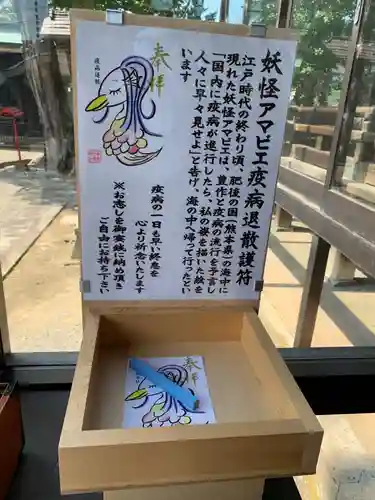 妖怪アマビエ疫病退散護符
江戸時代の終わり頃、肥後の国(熊本県)の海中に
現れた妖怪アマビエは、豊作と疫病の流行を予言し
「国内で疫病が流行したら、私の姿を描いた絵を
人々に早々見せよ」と告げ、海の中へ帰って行ったといい
ます
疫病の一日も早い終息を
心より祈念いたします
※お志しを御賽銭に納め頂き
ご自由にお持ち下さい
奉拝
疫病退散
奉拝